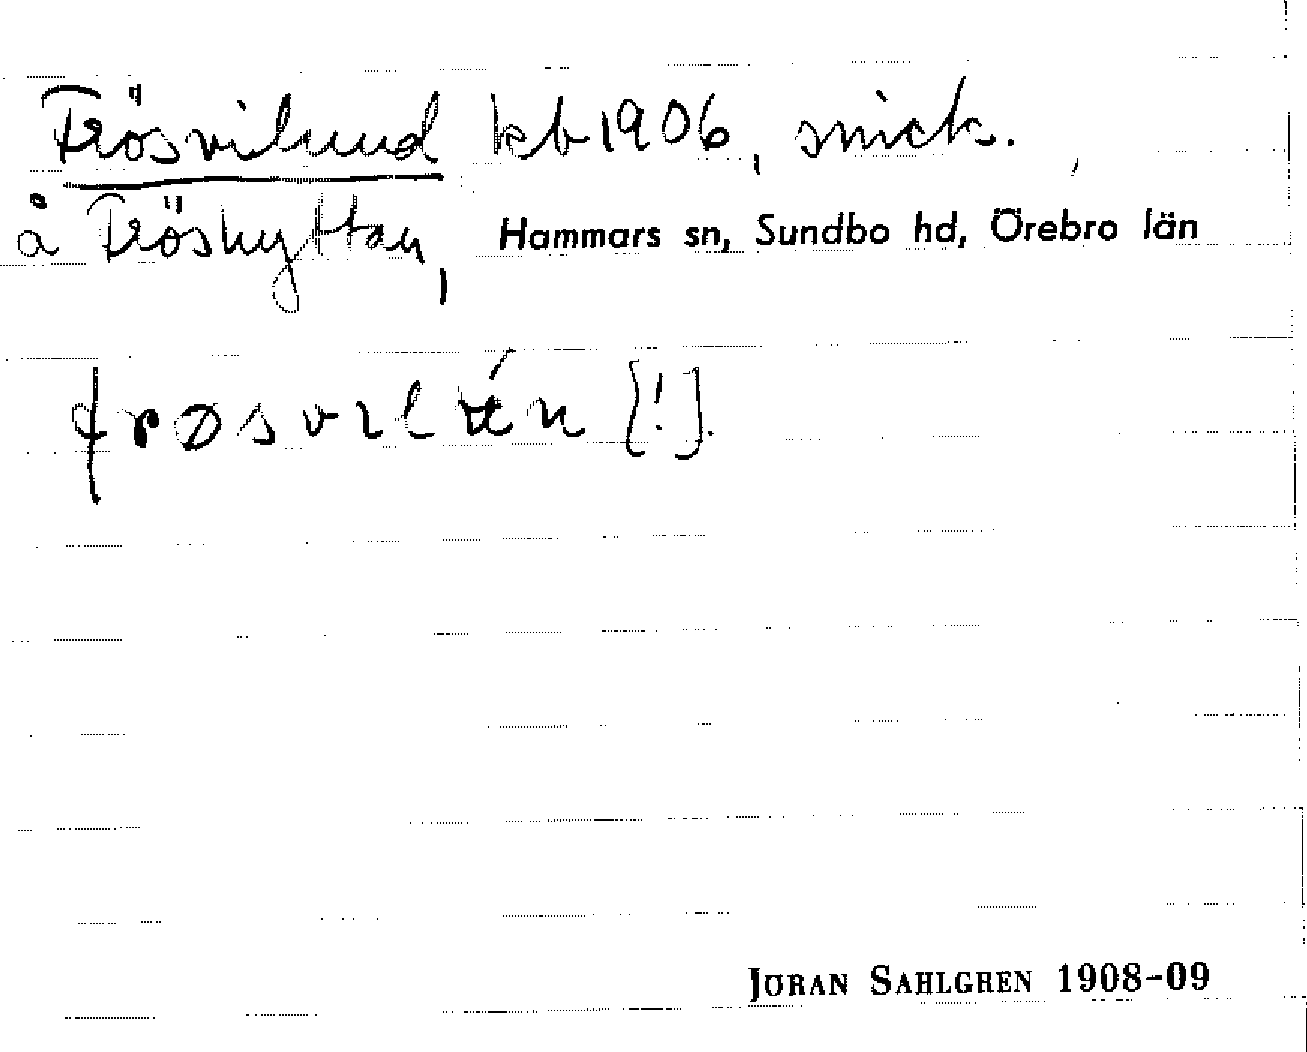 Frösvilund kb 1906, snick.
å Fröshyttan, Hammars sn, Sundbo hd, Örebro län
frøsvilún [!].
JÖRAN SAHLGREN 1908-09